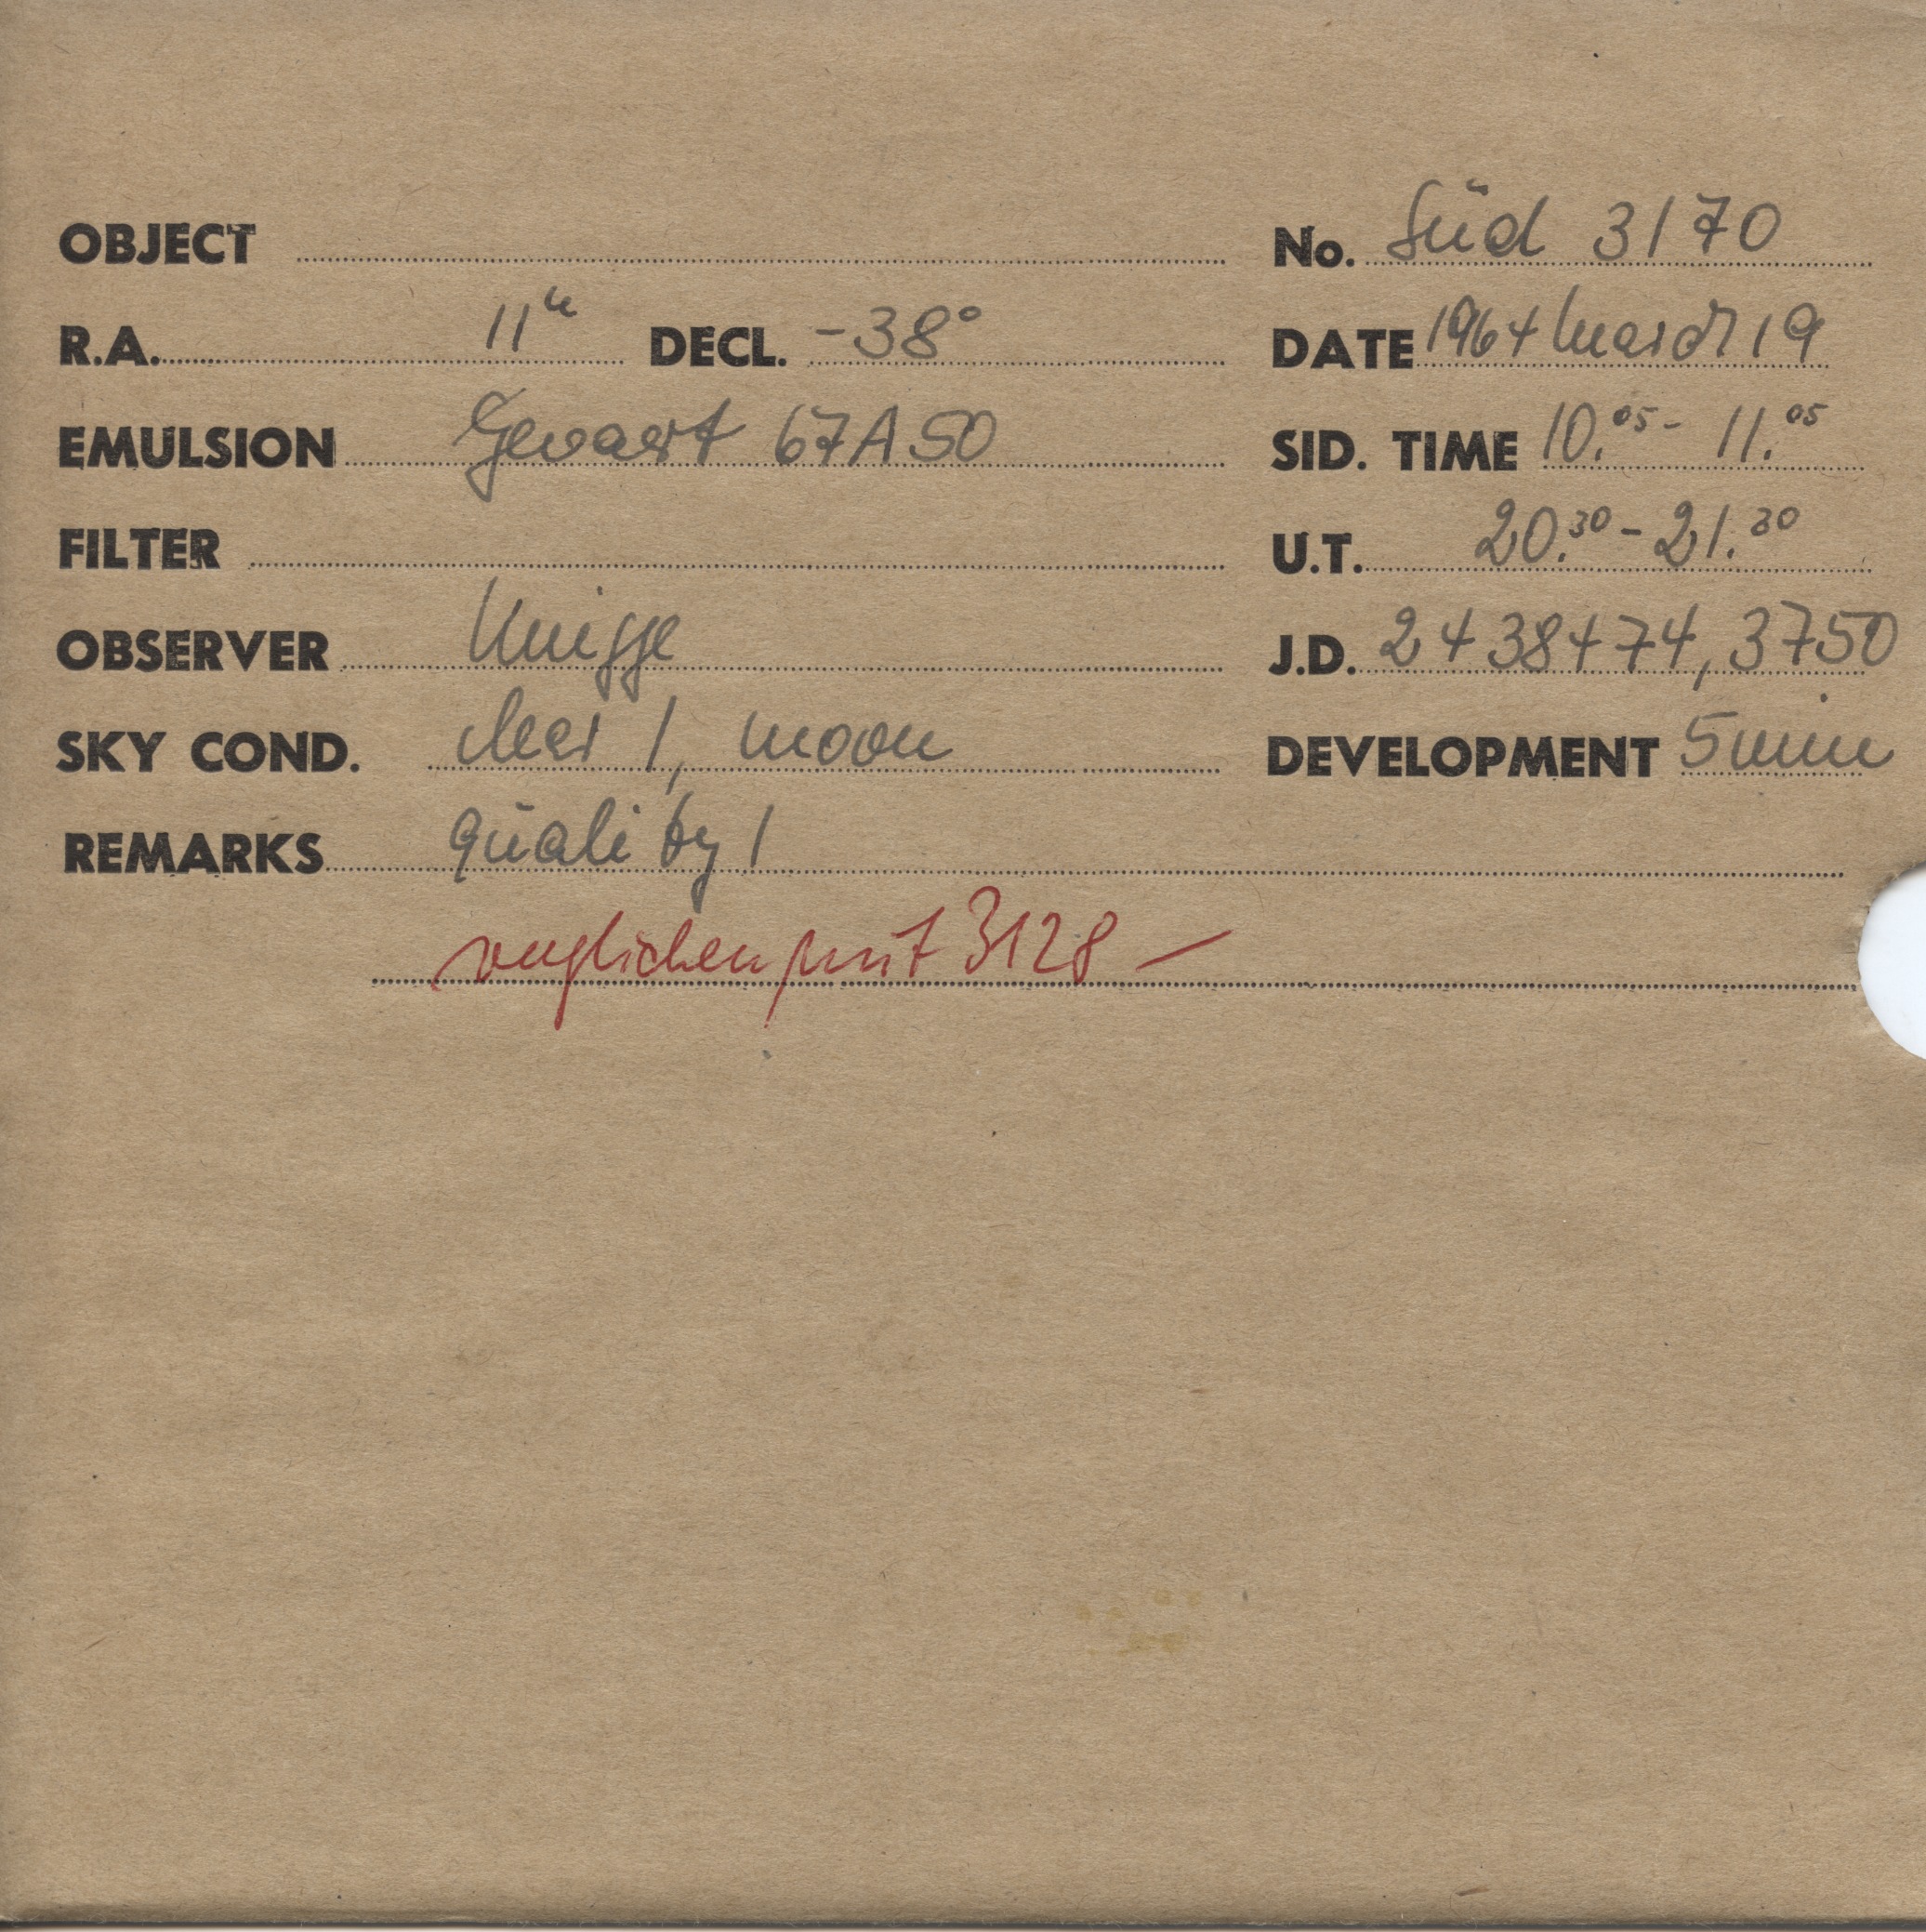 OBJECT No. Süd 3170
R.A. 11h DECL. -38° DATE 1964 March 19
EMULSION Gevaert 67A50 SID. TIME 10.05 - 11.05
FILTER U.T. 20.30 - 21.30
OBSERVER Knigge J.D. 2438474,3750
SKY COND. clear 1, moon DEVELOPMENT 5 min
REMARKS quality 1
verglichen mit 3128 —